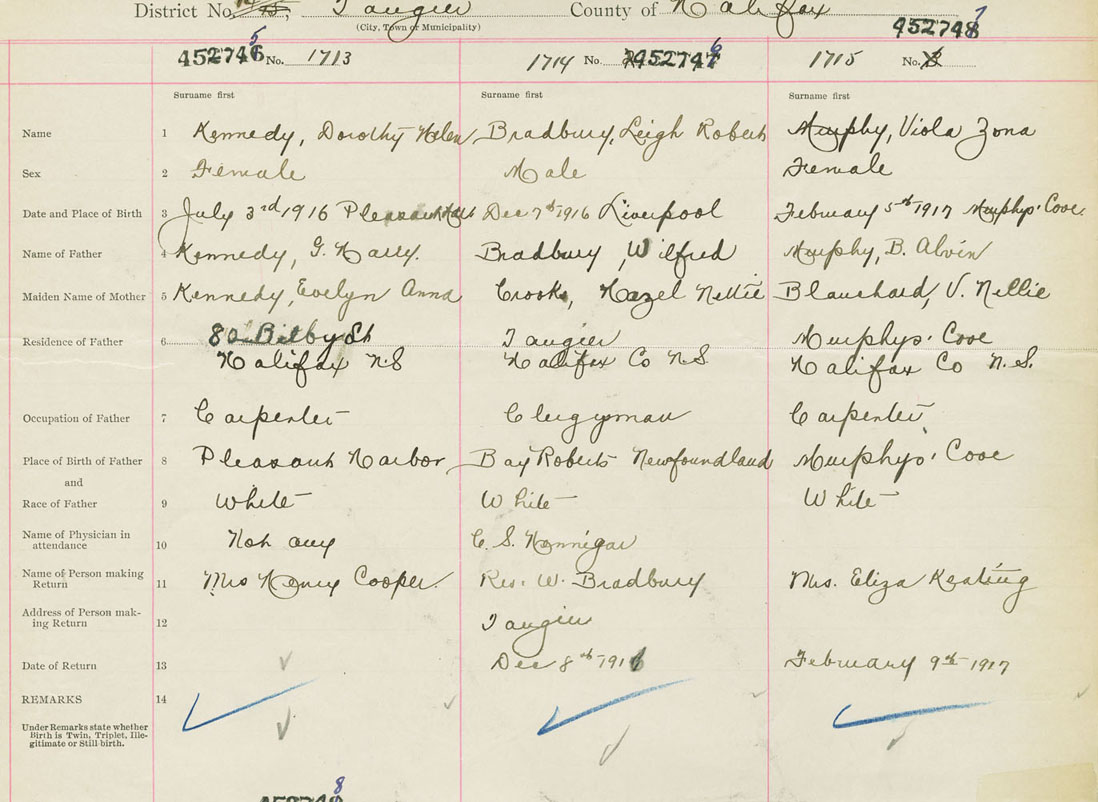 District No. Tangier County of Halifax
(City, Town or Municipality)
452746 5 No. 1713 1714 No. 452747 6 1715 No. 452748 7
Surname first Surname first Surname first
Name 1 Kennedy, Dorothy Helen Bradbury, Leigh Roberts Murphy, Viola Zona
Sex 2 Female Male Female
Date and Place of Birth 3 July 3rd 1916 Pleasant Dec 7th 1916 Liverpool February 5th 1917 Murphys' Cove.
Name of Father 4 Kennedy, G. Harry. Bradbury, Wilfred Murphy, B. Alvin
Maiden Name of Mother 5 Kennedy, Evelyn Anna Crooks, Hazel Nettie Blanchard, V. Nellie
Residence of Father 6 Bilby St Tangier Murphys' Cove
Halifax N.S Halifax Co N.S. Halifax Co N.S.
Occupation of Father 7 Carpenter Clergyman Carpenter
Place of Birth of Father 8 Pleasant Harbor Bay Roberts Newfoundland Murphys' Cove
and
Race of Father 9 White White White
Name of Physician in
attendance 10 Not any C. S. Hennigar
Name of Person making
Return 11 Mrs Henry Cooper. Rev. W. Bradbury Mrs. Eliza Keating
Address of Person mak-
ing Return 12 Tangier
Date of Return 13 Dec 8th 1916 February 9th 1917
REMARKS 14
Under Remarks state whether
Birth is Twin, Triplet, Ille-
gitimate or Still birth.
8